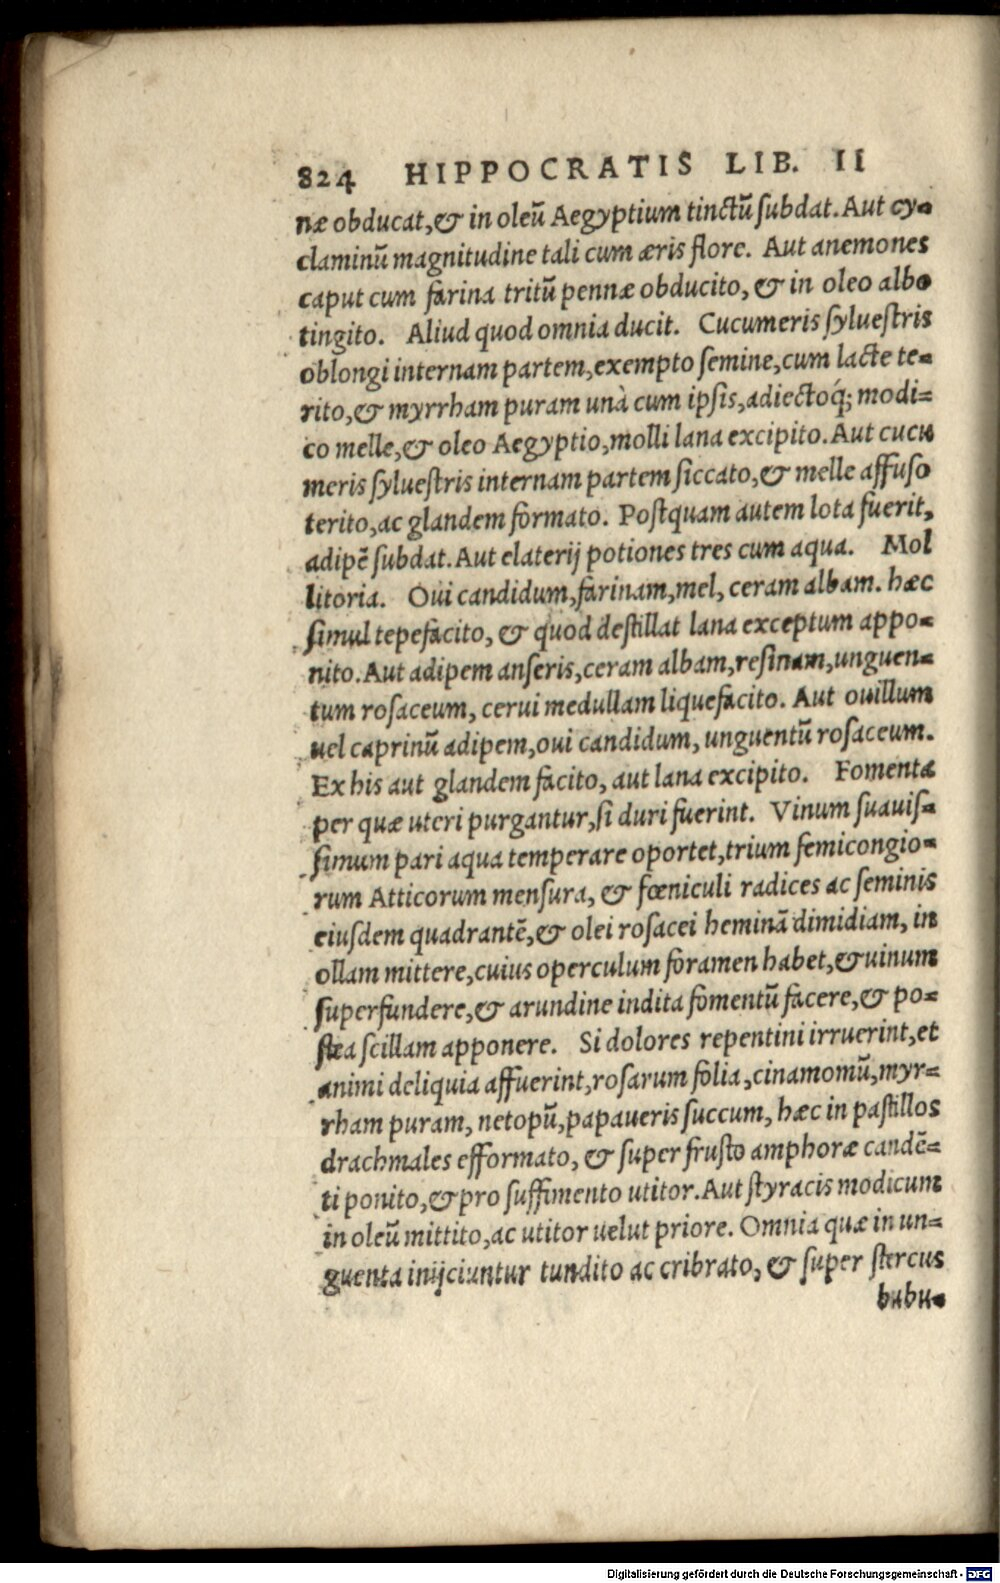 824 HIPPOCRATIS LIB. II
næ obducat,& in oleũ Aegyptium tinctũ ſubdat. Aut cy-
claminũ magnitudine tali cum æris flore. Aut anemones
caput cum farina tritũ pennæ obducito, & in oleo albo
tingito. Aliud quod omnia ducit. Cucumeris ſylueſtris
oblongi internam partem, exempto ſemine, cum lacte te=
rito,& myrrham puram unà cum ipſis, adiectoq́; modi=
co melle,& oleo Aegyptio, molli lana excipito. Aut cucu
meris ſylueſtris internam partem ſiccato,& melle affuſo
terito, ac glandem formato. Poſtquam autem lota fuerit,
adipẽ ſubdat. Aut elaterij potiones tres cum aqua. Mol
litoria. Oui candidum, farinam, mel, ceram albam. hæc
ſimul tepefacito, & quod deſtillat lana exceptum appo=
nito. Aut adipem anſeris, ceram albam, reſinam, unguen=
tum roſaceum, cerui medullam liquefacito. Aut ouillum
uel caprinũ adipem, oui candidum, unguentũ roſaceum.
Ex his aut glandem facito, aut lana excipito. Fomenta
per quæ uteri purgantur, ſi duri fuerint. Vinum ſuauiſ=
ſimum pari aqua temperare oportet, trium ſemicongio=
rum Atticorum menſura, & fœniculi radices ac ſeminis
eiuſdem quadrantẽ,& olei roſacei heminã dimidiam, in
ollam mittere, cuius operculum foramen habet,& uinum
ſuperfundere,& arundine indita fomentũ facere,& po=
ſtea ſcillam apponere. Si dolores repentini irruerint, et
animi deliquia affuerint, roſarum folia, cinamomũ, myr=
rham puram, netopũ, papaueris ſuccum, hæc in paſtillos
drachmales efformato, & ſuper fruſto amphoræ candẽ=
ti ponito,& pro ſuffimento utitor. Aut ſtyracis modicum
in oleũ mittito, ac utitor uelut priore. Omnia quæ in un=
guenta inijciuntur tundito ac cribrato, & ſuper ſtercus
bubu-
Digitalisierung gefördert durch die Deutsche Forschungsgemeinschaft - DFG